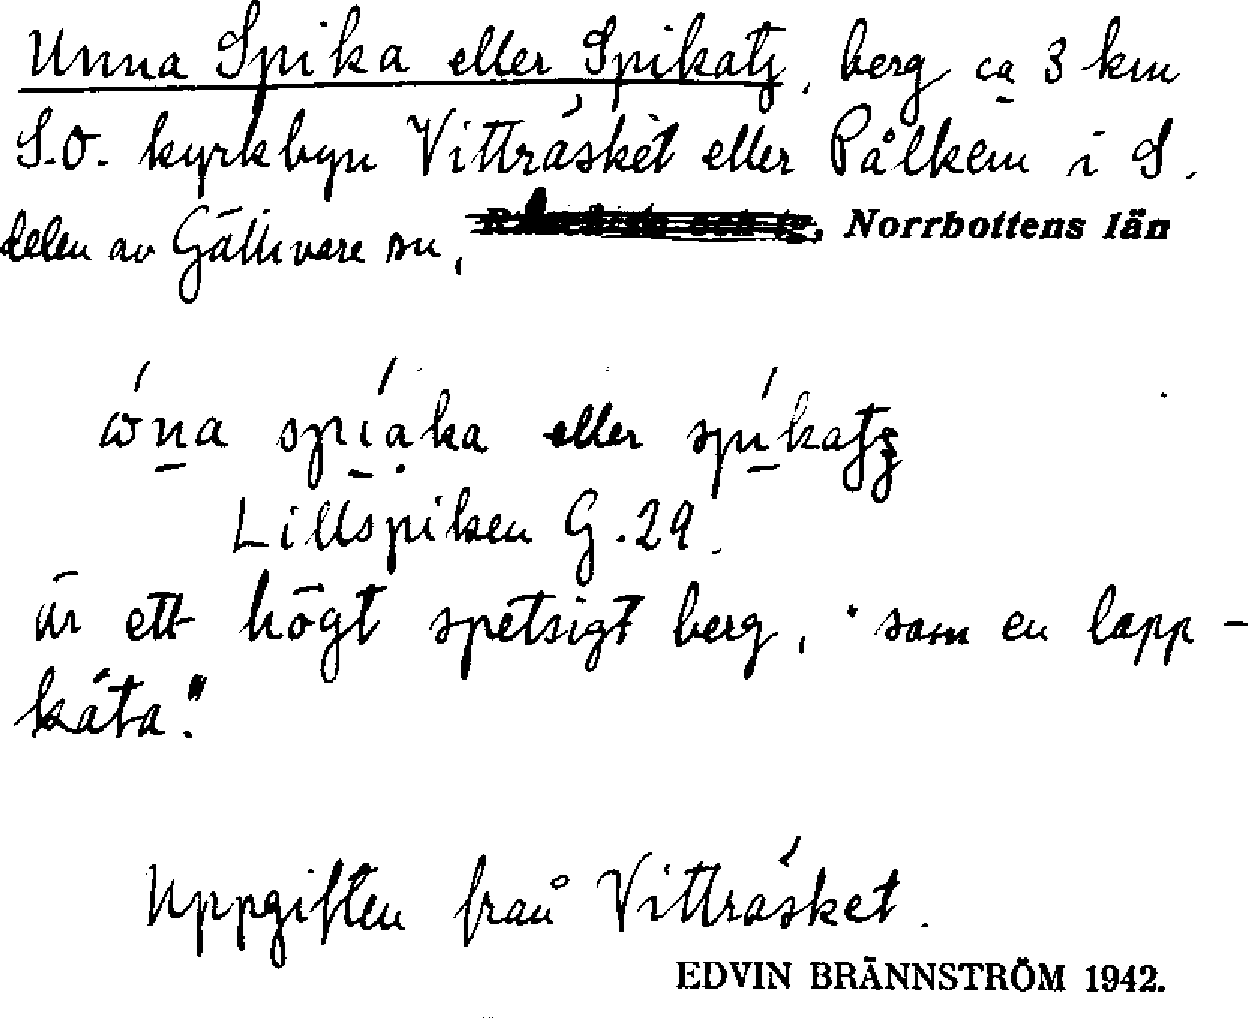 Unna Spika eller Spikatj, berg ca 3 km
S.O. kyrkbyn Vitträsket eller Pålkem i S.
delen av Gällivare sn, Norrbottens län
spíaka eller
Lillspiken G.29.
är ett högt spetsigt berg, "som en lapp-
kåta."
Uppgiften från Vitträsket.
EDVIN BRÄNNSTRÖM 1942.